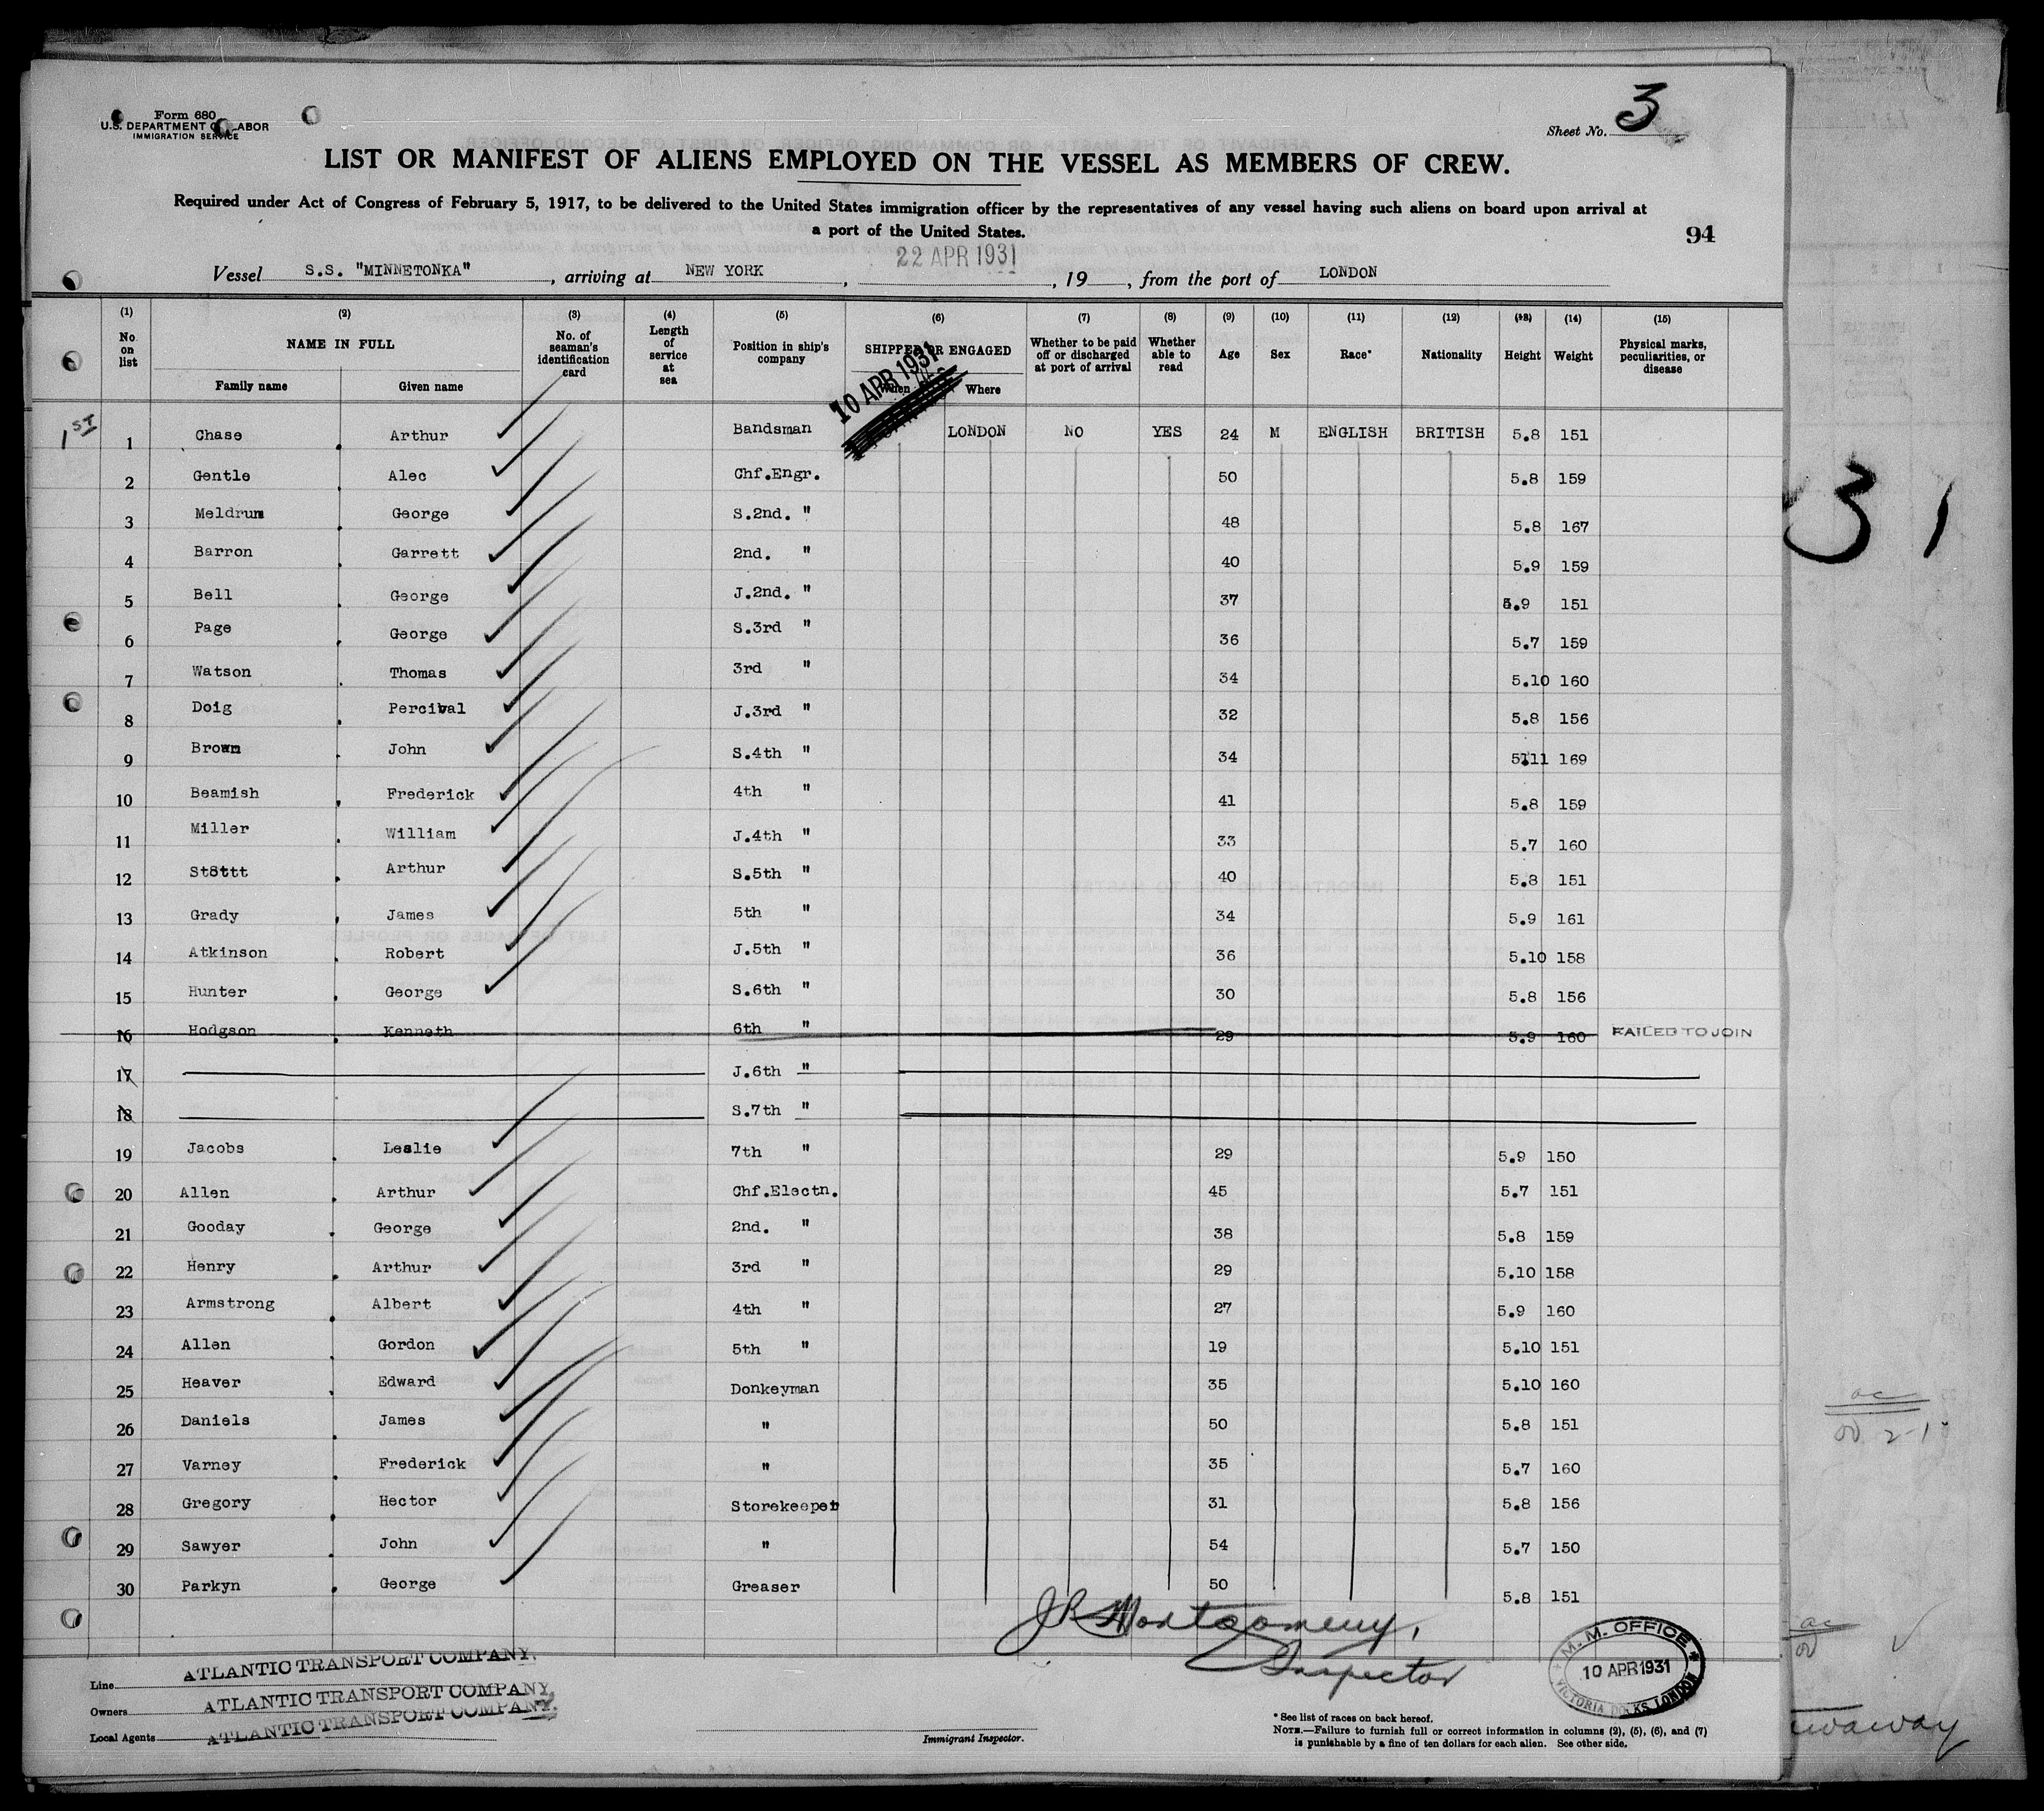 Form 680
U.S. DEPARTMENT OF LABOR
IMMIGRATION SERVICE
Sheet No. 3
LIST OR MANIFEST OF ALIENS EMPLOYED ON THE VESSEL AS MEMBERS OF CREW.
Required under Act of Congress of February 5, 1917, to be delivered to the United States immigration officer by the representatives of any vessel having such aliens on board upon arrival at
a port of the United States.
94
Vessel S.S. "MINNETONKA", arriving at NEW YORK, 22 APR 1931, 19, from the port of LONDON
(1) (2) (3) (4) (5) (6) (7) (8) (9) (10) (11) (12) (13) (14) (15)
No. on list
NAME IN FULL
Family name
Given name
No. of seaman's identification card
Length of service at sea
Position in ship's company
SHIPPED OR ENGAGED
When
Where
Whether to be paid off or discharged at port of arrival
Whether able to read
Age
Sex
Race*
Nationality
Height
Weight
Physical marks, peculiarities, or disease
10 APR 1931
1ST
1 Chase . Arthur Bandsman LONDON NO YES 24 M ENGLISH BRITISH 5.8 151
2 Gentle . Alec Chf.Engr. 50 5.8 159
3 Meldrum . George S.2nd. " 48 5.8 167
4 Barron . Garrett 2nd. " 40 5.9 159
5 Bell . George J.2nd. " 37 5.9 151
6 Page . George S.3rd " 36 5.7 159
7 Watson . Thomas 3rd " 34 5.10 160
8 Doig . Percival J.3rd " 32 5.8 156
9 Brown . John S.4th " 34 5.11 169
10 Beamish . Frederick 4th " 41 5.8 159
11 Miller . William J.4th " 33 5.7 160
12 Arthur S.5th " 40 5.8 151
13 Grady . James 5th " 34 5.9 161
14 Atkinson . Robert J.5th " 36 5.10 158
15 Hunter . George S.6th " 30 5.8 156
16 Hodgson . Kenneth 6th " 29 5.9 160 FAILED TO JOIN
17 J.6th "
18 S.7th "
19 Jacobs . Leslie 7th " 29 5.9 150
20 Allen . Arthur Chf.Electn. 45 5.7 151
21 Gooday . George 2nd. " 38 5.8 159
22 Henry . Arthur 3rd " 29 5.10 158
23 Armstrong . Albert 4th " 27 5.9 160
24 Allen . Gordon 5th " 19 5.10 151
25 Heaver . Edward Donkeyman 35 5.10 160
26 Daniels . James " 50 5.8 151
27 Varney . Frederick " 35 5.7 160
28 Gregory . Hector Storekeeper 31 5.8 156
29 Sawyer . John " 54 5.7 150
30 Parkyn . George Greaser 50 5.8 151
J R Montgomery,
Inspector
Line ATLANTIC TRANSPORT COMPANY.
Owners ATLANTIC TRANSPORT COMPANY.
Local Agents ATLANTIC TRANSPORT COMPANY.
Immigrant Inspector.
M. M. OFFICE
10 APR 1931
VICTORIA DOCKS. LONDON
* See list of races on back hereof.
NOTE.—Failure to furnish full or correct information in columns (2), (5), (6), and (7)
is punishable by a fine of ten dollars for each alien. See other side.
31